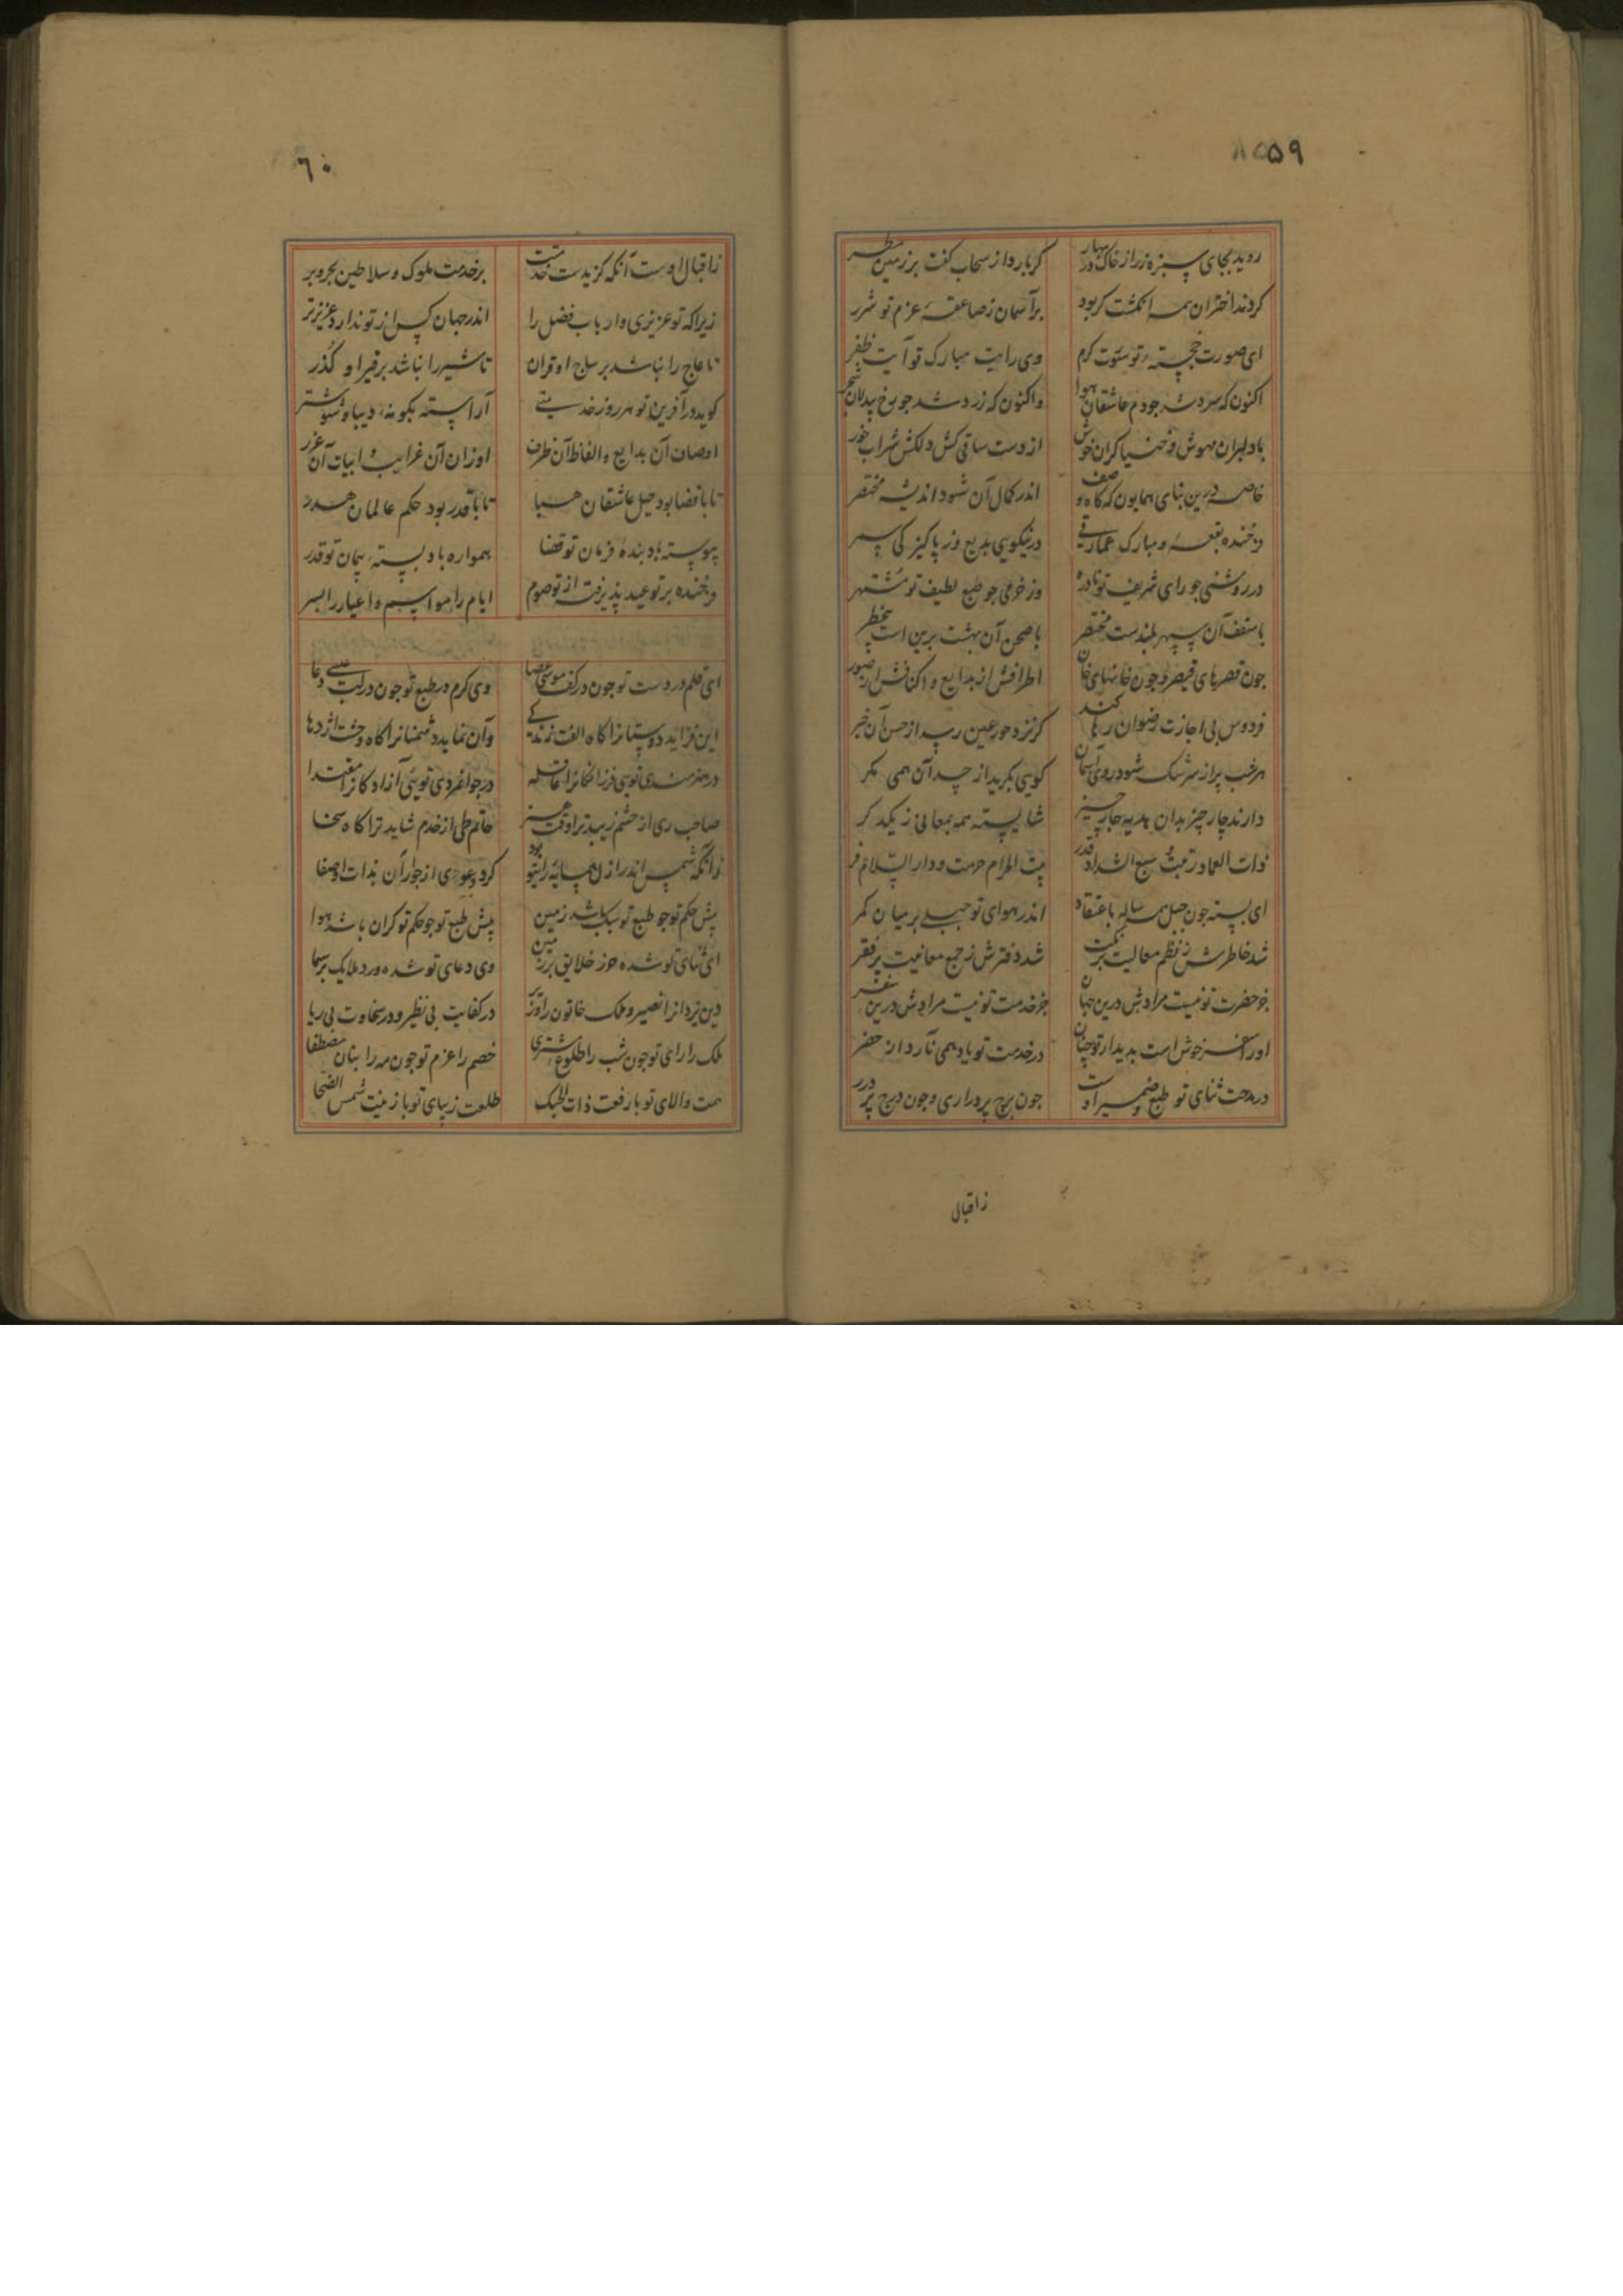 ۵۹
روید بجای سبزه زر از خاک در بهار کر بارد از سحاب کفت بر زمین مطر
کردند اختران همه انکشت کر بود بر آسمان ز صاعقهٔ عزم تو شرر
ای صورت خجستهٔ تو صورت کرم وی رایت مبارک تو آیت ظفر
اکنون که سرد شد جو دم عاشقان هوا واکنون که زرد شد جو رخ بیدلان شجر
با دلبران مهوش و خنیاکران خوش از دست ساقی کش دلکش شراب خور
خاصه درین بنای همایون که کاه وصف اندر کمال آن شود اندیشه مختصر
فرخنده بقعهٔ و مبارک عمارتی در نیکویی بدیع وز پاکیزکی سمر
در روشنی جو رای شریف تو نادره وز خرمی جو طبع لطیف تو مشتهر
با سقف آن سپهر بلندست مختصر با صحن آن بهشت برین است بیخطر
جون قصرهای قیصر و جون خانهای خان اطرافش از بدایع و اکنافش از صور
فردوس بی اجازت رضوان رها کند کر نزد حور عین رسد از حسن آن خبر
هر شب پر از سرشک شود روی آسمان کویی بکرید از حسد آن همی مکر
دارند چار چیز بدان هدیه جار جیز شایسته همه بمعانی ز یکدکر
ذات العماد رتبت و سبع الشداد قدر بیت الحرام حرمت و دار السلام فر
ای بسته جون جبلی همه ساله باعتقاد اندر هوای تو جبلی بر میان کمر
شد خاطرش ز نظم معالیت پر نکت شد دفترش ز جمع معانیت پر فقر
جز حضرت تو نیست مرادش درین جهان جز خدمت تو نیست مرادش درین سفر
او را سفر خوش است بدیدار تو جنان در خدمت تو یاد همی نارد از حضر
در مدحت ثنای تو طبع و ضمیر اوست جون برج پر دراری و جون درج پر درر
زاقبال
۶۰
ز اقبال اوست آنکه کزیدست خدمتت بر خدمت ملوک و سلاطین بحر و بر
زیرا که تو عزیزی و ارباب فضل را اندر جهان کس از تو ندارد عزیزتر
تا عاج را نباشد بر ساج اقتران تا شیر را نباشد بر قیر او کذر
کوید در آفرین تو هر روز خدمتی آراسته بکونهٔ دیبا و شوشتر
اوصاف آن بدایع و الفاظ آن طرف اوزان آن غرایب و ابیات آن غرر
تا با قضا بود حیل عاشقان هبا تا با قدر بود حکم عالمان هدر
پیوسته باد بندهٔ فرمان تو قضا همواره باد بستهٔ پیمان تو قدر
فرخنده بر تو عید پذیرفته از تو صوم ایام را مواسم و اعیاد را بسر
ای قلم در دست تو جون در کف موسی عصا وی کرم در طبع تو جون در لب عیسی دعا
این فزاید دوستانرا کاه الفت زندکی وآن نماید دشمنانرا کاه وحشت اژدها
در هنرمندی تویی فرزانکانرا قافله در جوانمردی تویی آزادکانرا مقتدا
صاحب ری از حشم زیبد ترا وقت هنر حاتم طی از خدم شاید ترا کاه سخا
زآنکه شمس اندر ازل همسایهٔ رای تو بود کرد دعوی از جوار آن بذات او صفا
پیش حکم تو جو طبع تو سبک باشد زمین پیش طبع تو جو حکم تو کران باشد هوا
ای ثنای تو شده حرز خلایق بر زمین وی دعای تو شده ورد ملایک بر سما
دین یزدانرا نصیر و ملک خاتون را وزیر در کفایت بی نظیر و در سخاوت بی ریا
ملک را رای تو جون شب را طلوع مشتری خصم را عزم تو جون مه را بنان مصطفا
همت والای تو با رفعت ذات الحبک طلعت زیبای تو با زینت شمس الضحا